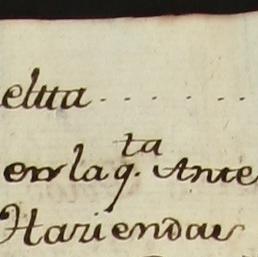 eltta . . . . . .
en la q.ta Ante
Haziendas